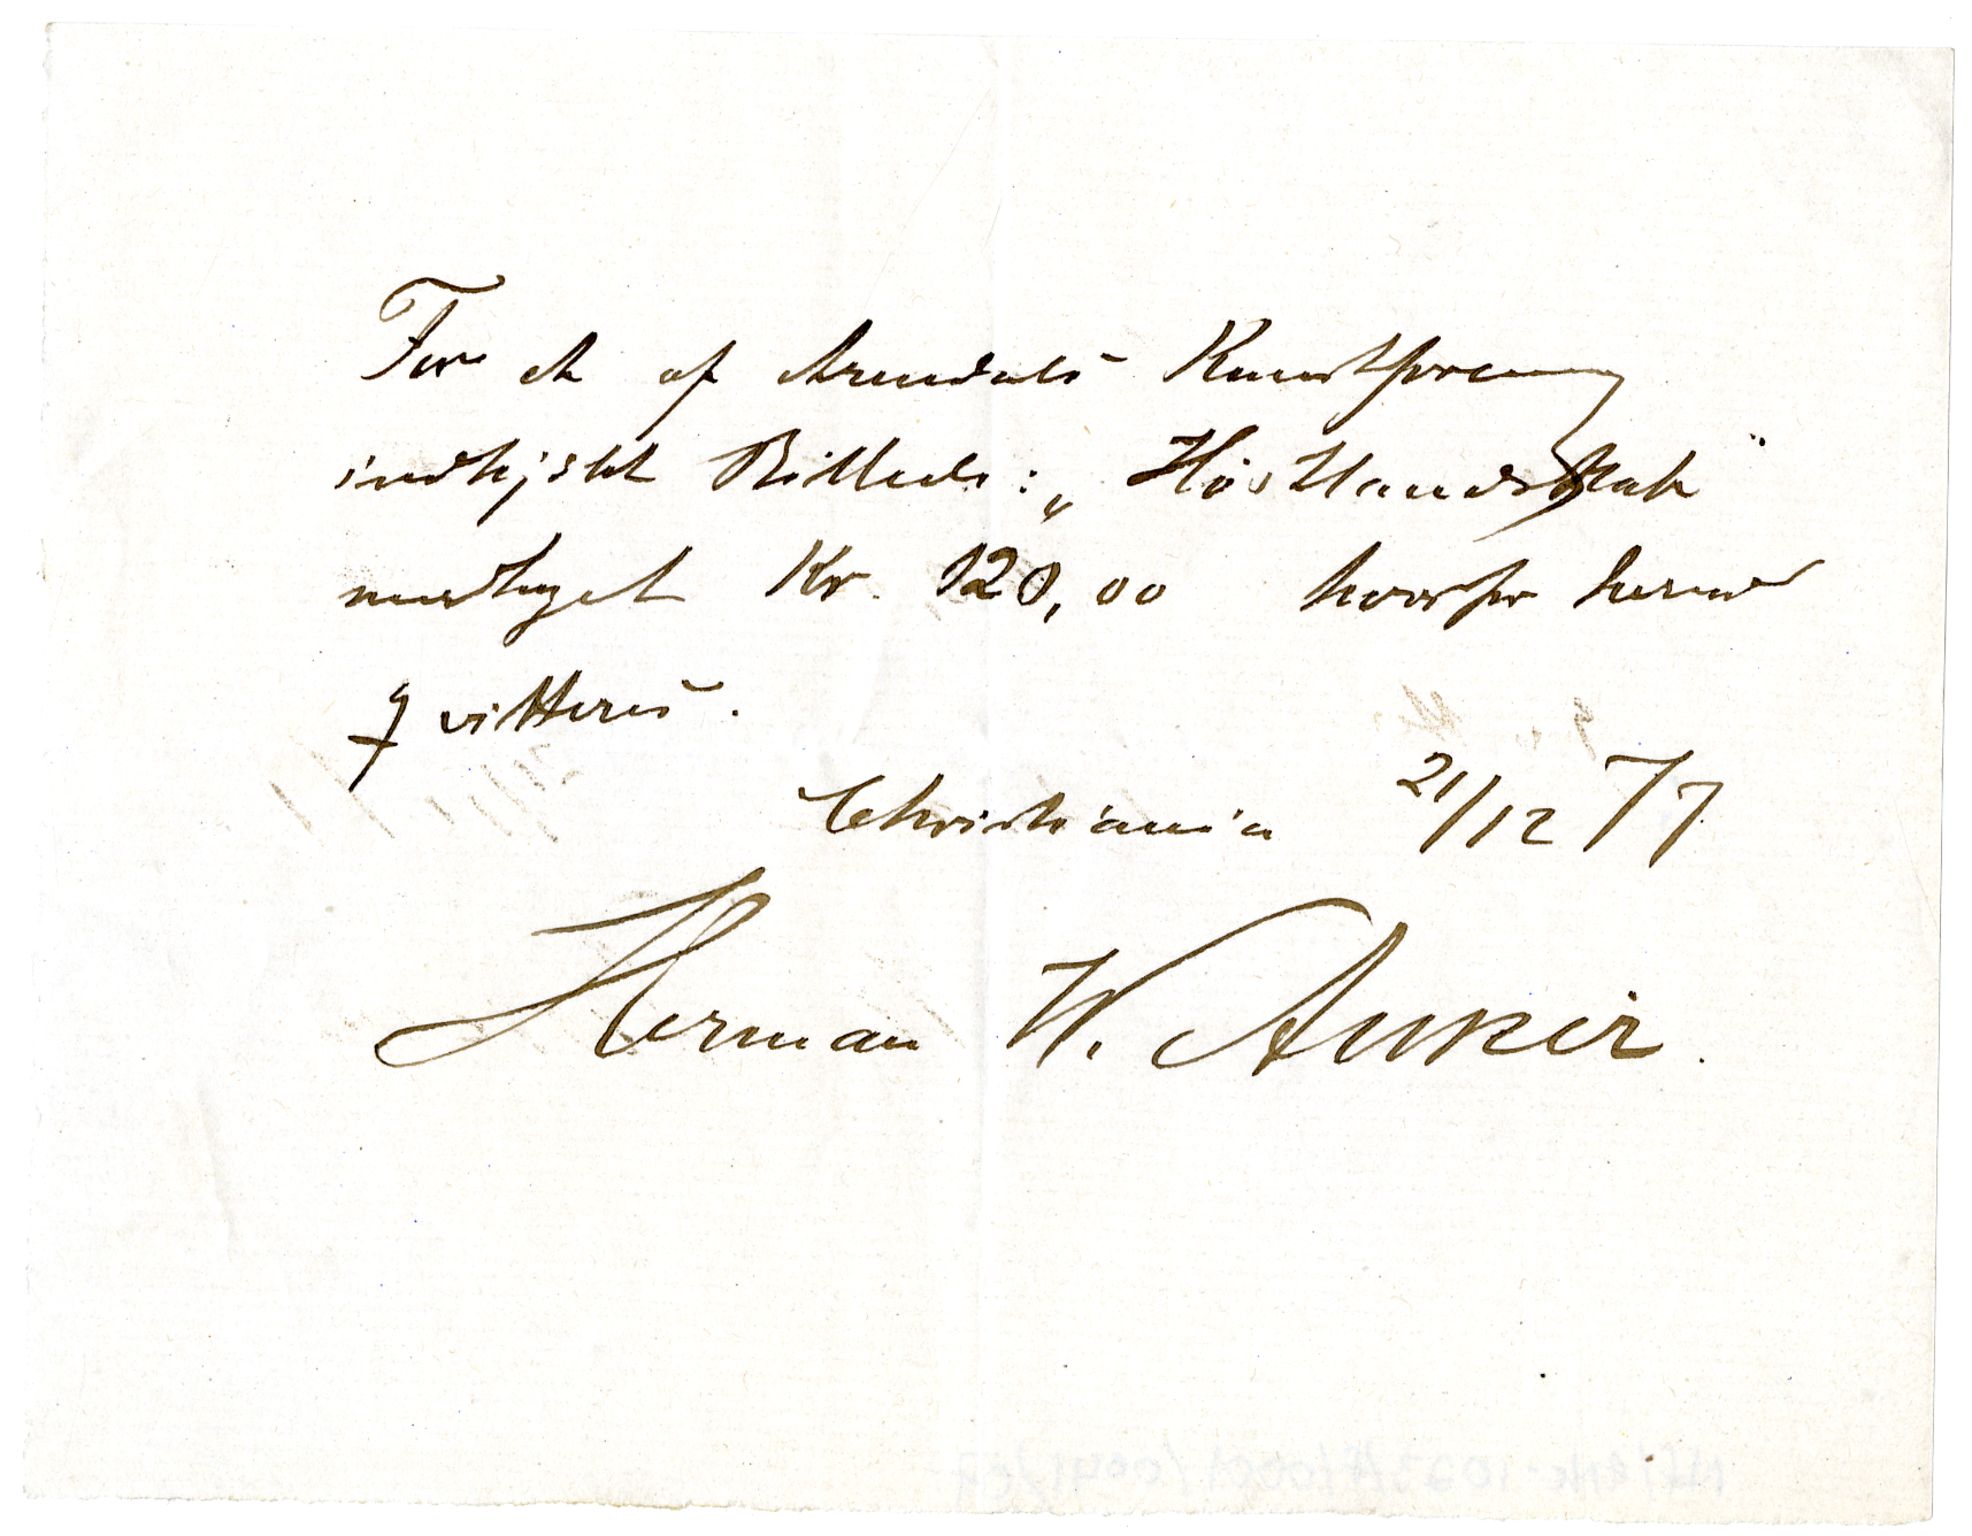 For et af Arendals Kunstforening
indkjøbt Billede: „Høstlandskab"
modtaget Kr. 120,00 hvorfor herved
qvitteres.
Christiania 21/12 77
Herman W. Anker.